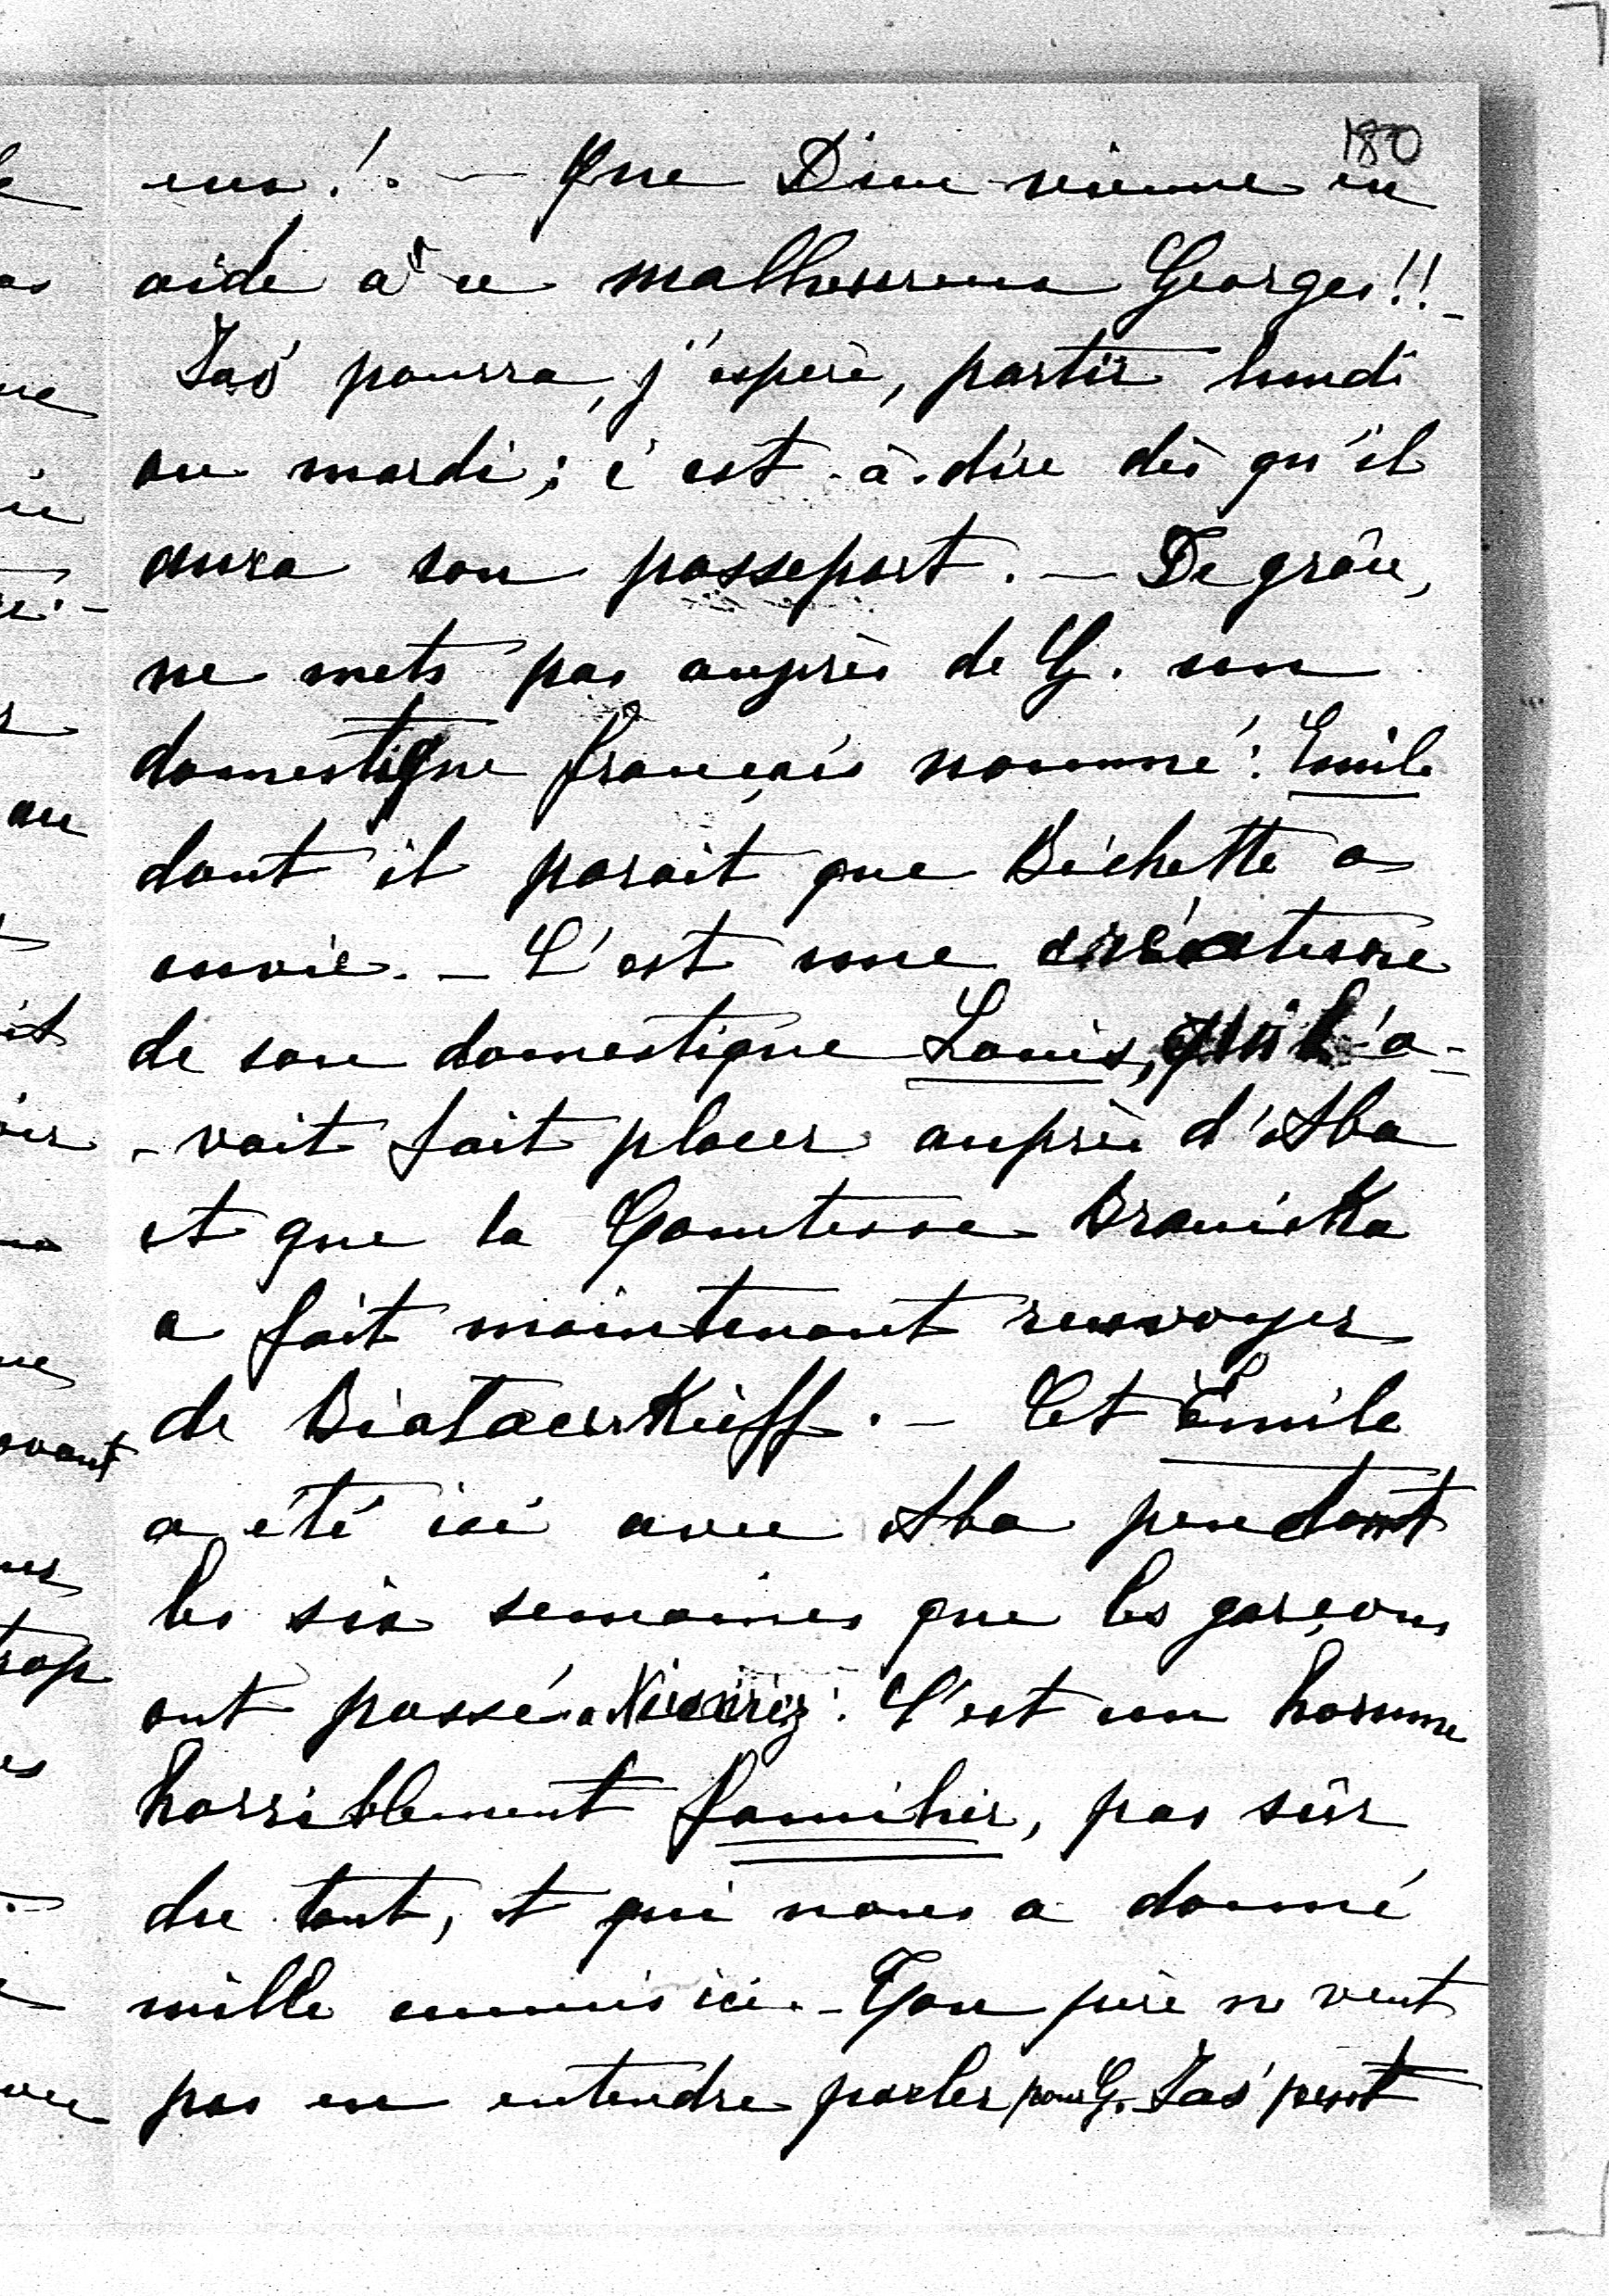 180
eux!. — Que Dieu vienne en
aide à ce malheureux Georges!! –
Jaś pourra, j'espère, partir lundi
ou mardi; c'est-à-dire dès qu'il
aura son passeport. — De grâce,
ne mets pas auprès de G. un
domestique français nommé: Emile
dont il parait que Bichette a
envie. — C'est une créature
de son domestique Louis, qui l'a-
-vait fait placer auprès d'Aba
et que la Comtesse Branicka
a fait maintenant renvoyer
de Białacerkieff. — Cet Emile
a été ici avec Aba pendant
les six semaines que les garçons
ont passé a Nieświez. C'est un homme
horriblement familier, pas sûr
du tout, et qui nous a donné
mille ennuis ici. – Ton père ne veut
pas en entendre parler pour G. Jaś peut